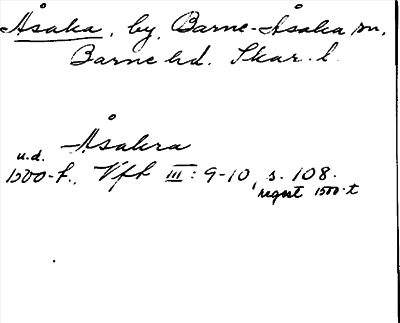 Åsaka, by, Barne-Åsaka sn,
Barne hd. Skar. l.
Åsakra
u.d.
1500-t., Vft III: 9-10, s. 108.
regest 1500-t